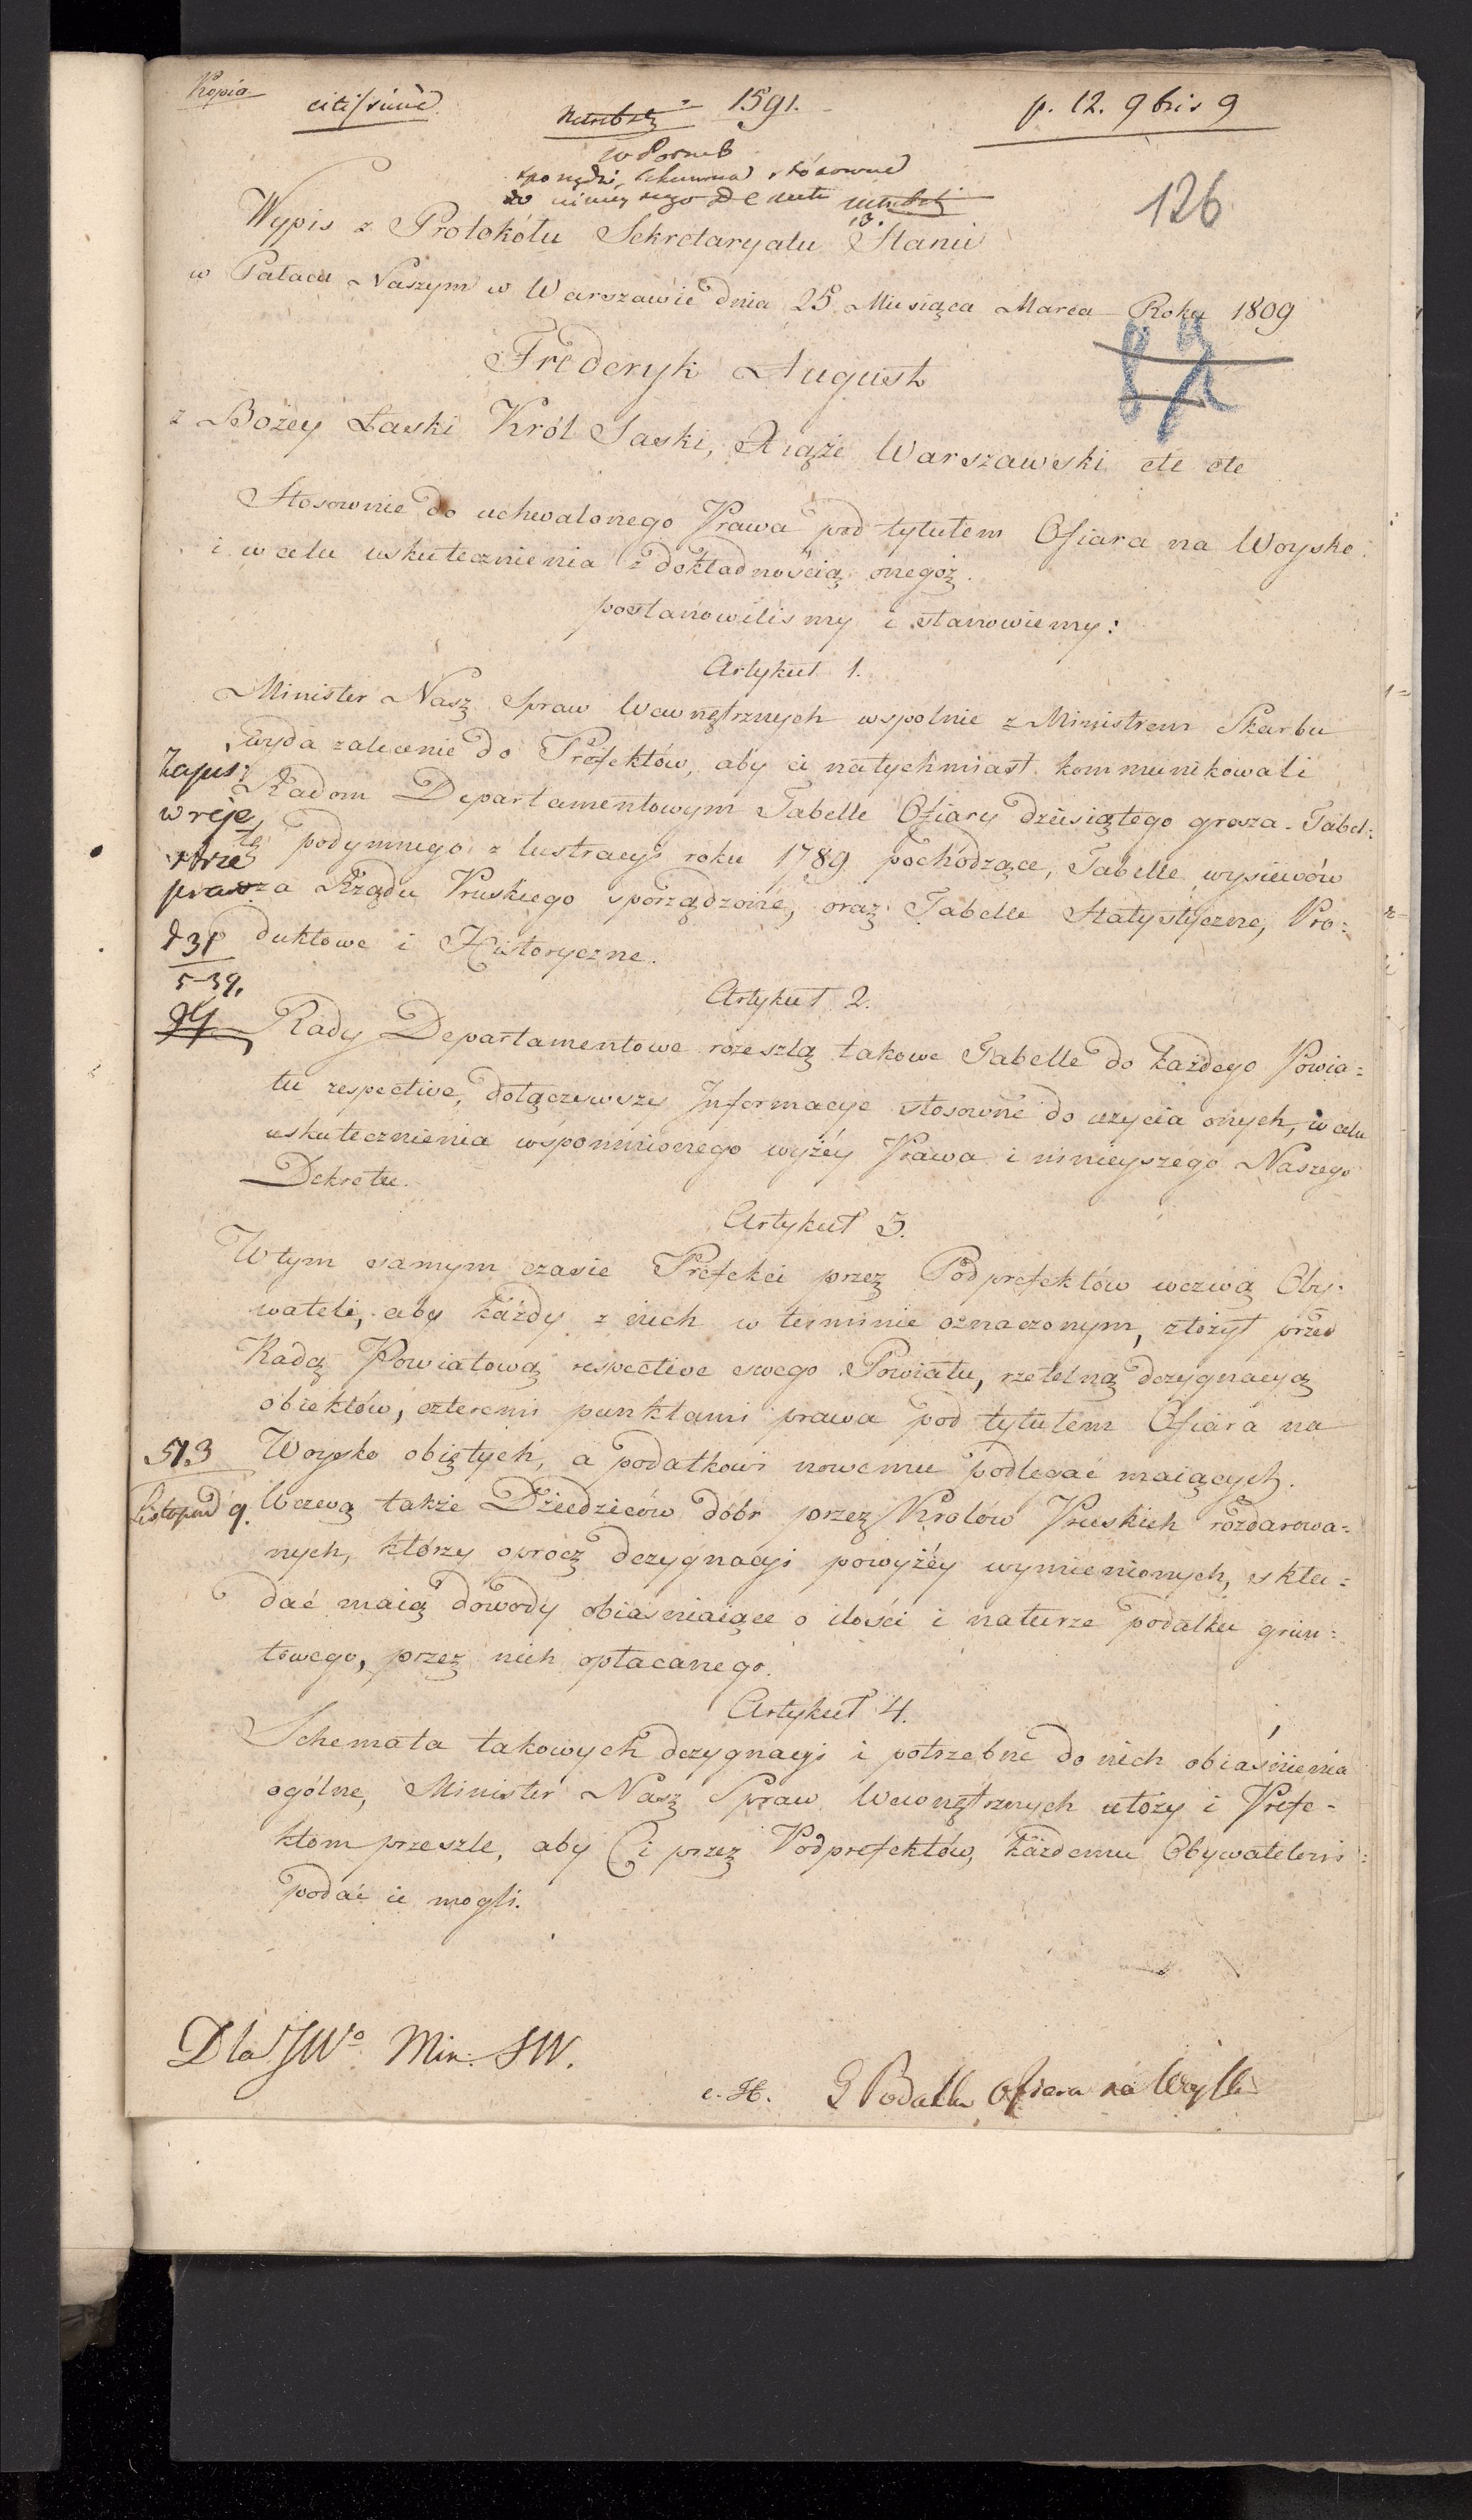 Kopia
citissime
1591.
p. 12. 9bris 9
126
Wypis z Protokółu Sekretaryatu Stanu
w Pałacu Naszym w Warszawie dnia 25 Miesiąca Marca Roku 1809
Frederyk August
z Bożey Łaski Król Saski, Xiąże Warszawski etc etc
Stosownie do uchwalonego Prawa pod tytułem Ofiara na Woysko
i w celu uskutecznienia z dokładnością onegoż.
postanowilismy i stanowiemy:
Artykuł 1.
Minister Nasz Spraw Wewnętrznych wspolnie z Ministrem Skarbu
wyda zalecenie do Prefektów, aby ci natychmiast kommunikowali
Radom Departamentowym Tabelle Ofiary dziesiątego grosza. Tabel:
lę podymnego z lustracyi roku 1789 pochodzące, Tabelle wysiewów
za Rządu Pruskiego sporządzone, oraz Tabelle Statystyczne, Pro:
duktowe i Historyczne.
Zapis:
w reje
strze
531
5-39.
Artykuł 2.
Rady Departamentowe rozeszlą takowe Tabelle do każdego Powia=
tu respective, dołączywszy Informacye stosowne do użycia onych, w celu
uskutecznienia wspomnionego wyżéy Prawa i ninieyszego Naszego
Dekretu.
Artykuł 3.
W tym samym czasie Prefekci przez Podprefektów wezwą Oby:
wateli, aby każdy z nich w terminie oznaczonym, złożył przed
Radą Powiatową respective swego Powiatu, rzetelną dezygnacyą
obiektów, czterema punktami prawa pod tytułem Ofiara na
Woysko obiętych, a podatkowi nowemu podlegać maiących.
513
Listopad 9.
Wezwą także Dziedziców dóbr przez Krolów Pruskich rozdarowa=
nych, którzy oprócz dezygnacyi powyżéy wymienionych, skła=
dać maią dowody obiasniaiące o ilości i naturze podatku grun=
towego, przez nich opłacanego.
Artykuł 4.
Schemata takowych dezygnacyi i potrzebne do nich obiaśnienia
ogólne, Minister Nasz Spraw Wewnętrznych ułoży i Prefe=
ktom przeszle, aby Ci przez Podprefektów, każdemu Obywatelowi
podać ie mogli.
Dla JWo Min: SW.
Podatku Ofiara na Woysko